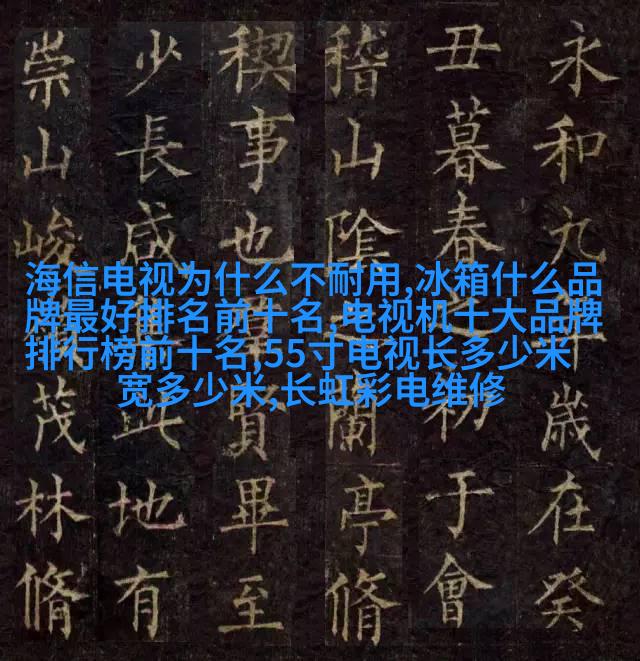 永和九年歲在癸
丑暮春之初于會
稽山陰之蘭亭脩
稧事也羣賢畢至
少長咸集此地有
崇山峻茂林脩
海信电视为什么不耐用,冰箱什么品
牌最好排名前十名,电视机十大品牌
排行榜前十名,55寸电视长多少米
宽多少米,长虹彩电维修